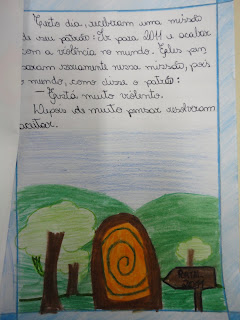 Certo dia, receberam uma missão
de seu patrão: Ir para 2011 e acabar
com a violência no mundo. Eles pen
saram seriamente nessa missão, pois
o mundo, como disse o patrão:
— Está muito violento.
Depois de muito pensar resolveram
aceitar.
Portal
2011